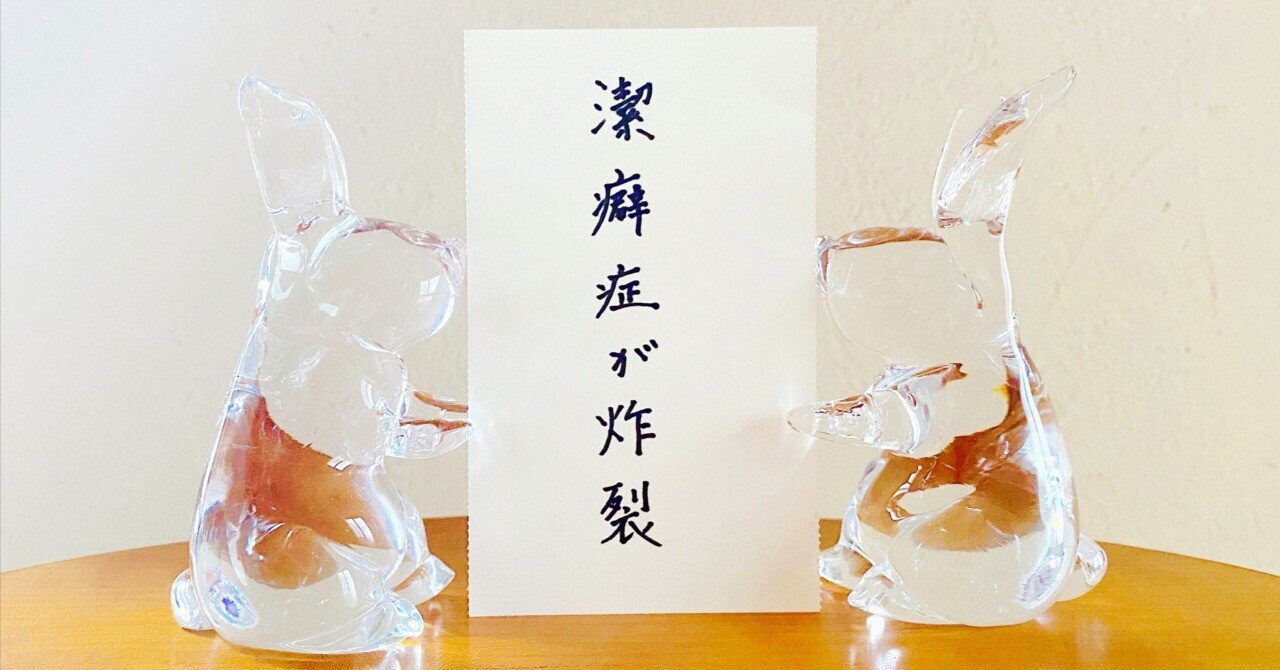 潔癖症が炸裂